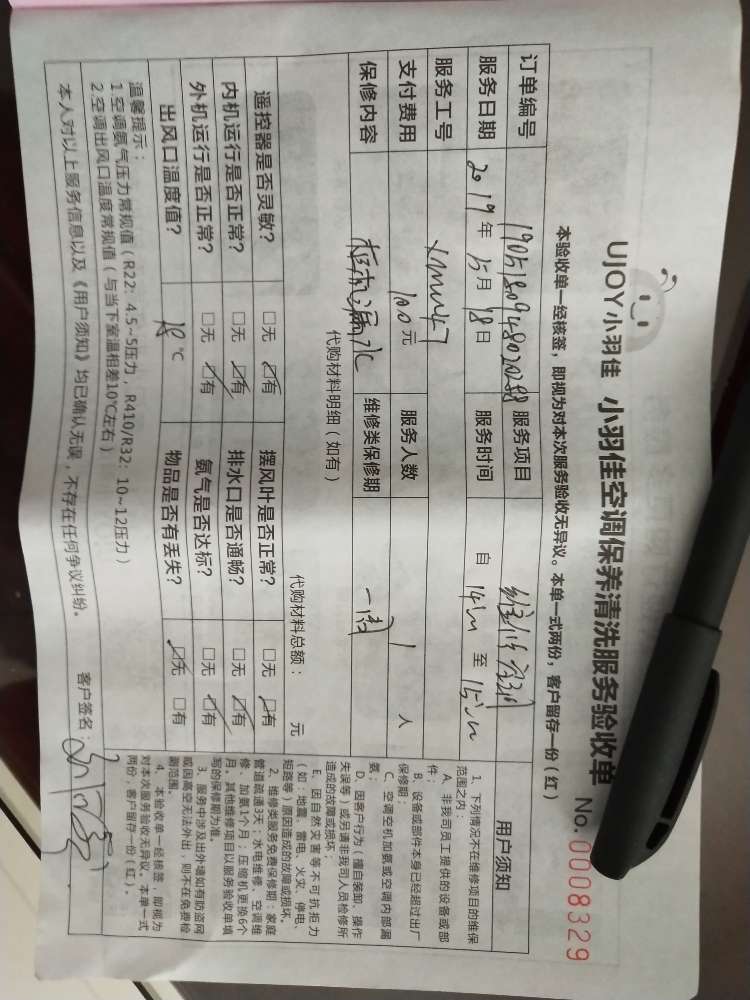 UJOY小羽佳 小羽佳空调保养清洗服务验收单 No.0008329
本验收单一经核签，即视为对本次服务验收无异议。本单一式两份，客户留存一份（红）
订单编号 服务项目
服务日期 2019年5月18日 服务时间 自 14:00 至 15:00
服务工号
支付费用 100元 服务人数 1人
保修内容 漏水 维修类保修期 一个月
代购材料明细（如有） 代购材料总额： 元
遥控器是否灵敏？ □无 ☑有 摆风叶是否正常？ □无 ☑有
内机运行是否正常？ □无 ☑有 排水口是否通畅？ □无 ☑有
外机运行是否正常？ □无 ☑有 氨气是否达标？ □无 ☑有
出风口温度值？ 18℃ 物品是否有丢失？ ☑无 □有
温馨提示：
1空调氨气压力常规值（R22：4.5~5压力，R410/R32：10~12压力）
2空调出风口温度常规值（与当下室温相差10℃左右）
本人对以上服务信息以及《用户须知》均已确认无误，不存在任何争议纠纷。 客户签名：
用户须知
1、下列情况不在维修项目的维保
范围之内：
A、非我司员工提供的设备或部
件；
B、设备或部件本身已经超过出厂
保修期；
C、空调空机加氨或空调内部漏
氨；
D、因客户行为（擅自装卸、操作
失误等）或另请非我司人员检修所
造成的故障或损坏；
E、因自然灾害等不可抗拒力
（如：地震、雷电、火灾、停电、
短路等）原因造成的故障或损坏。
2、维修类服务免费保修期：家庭
管道疏通3天；水电维修、空调维
修、加氨1个月；压缩机更换6个
月。其他维修项目以服务验收单填
写的保修期为准。
3、服务中涉及出外墙如有防盗网
或因高空无法外出，则不在免费检
测范围。
4、本验收单一经核签，即视为
对本次服务验收无异议。本单一式
两份，客户留存一份（红）。